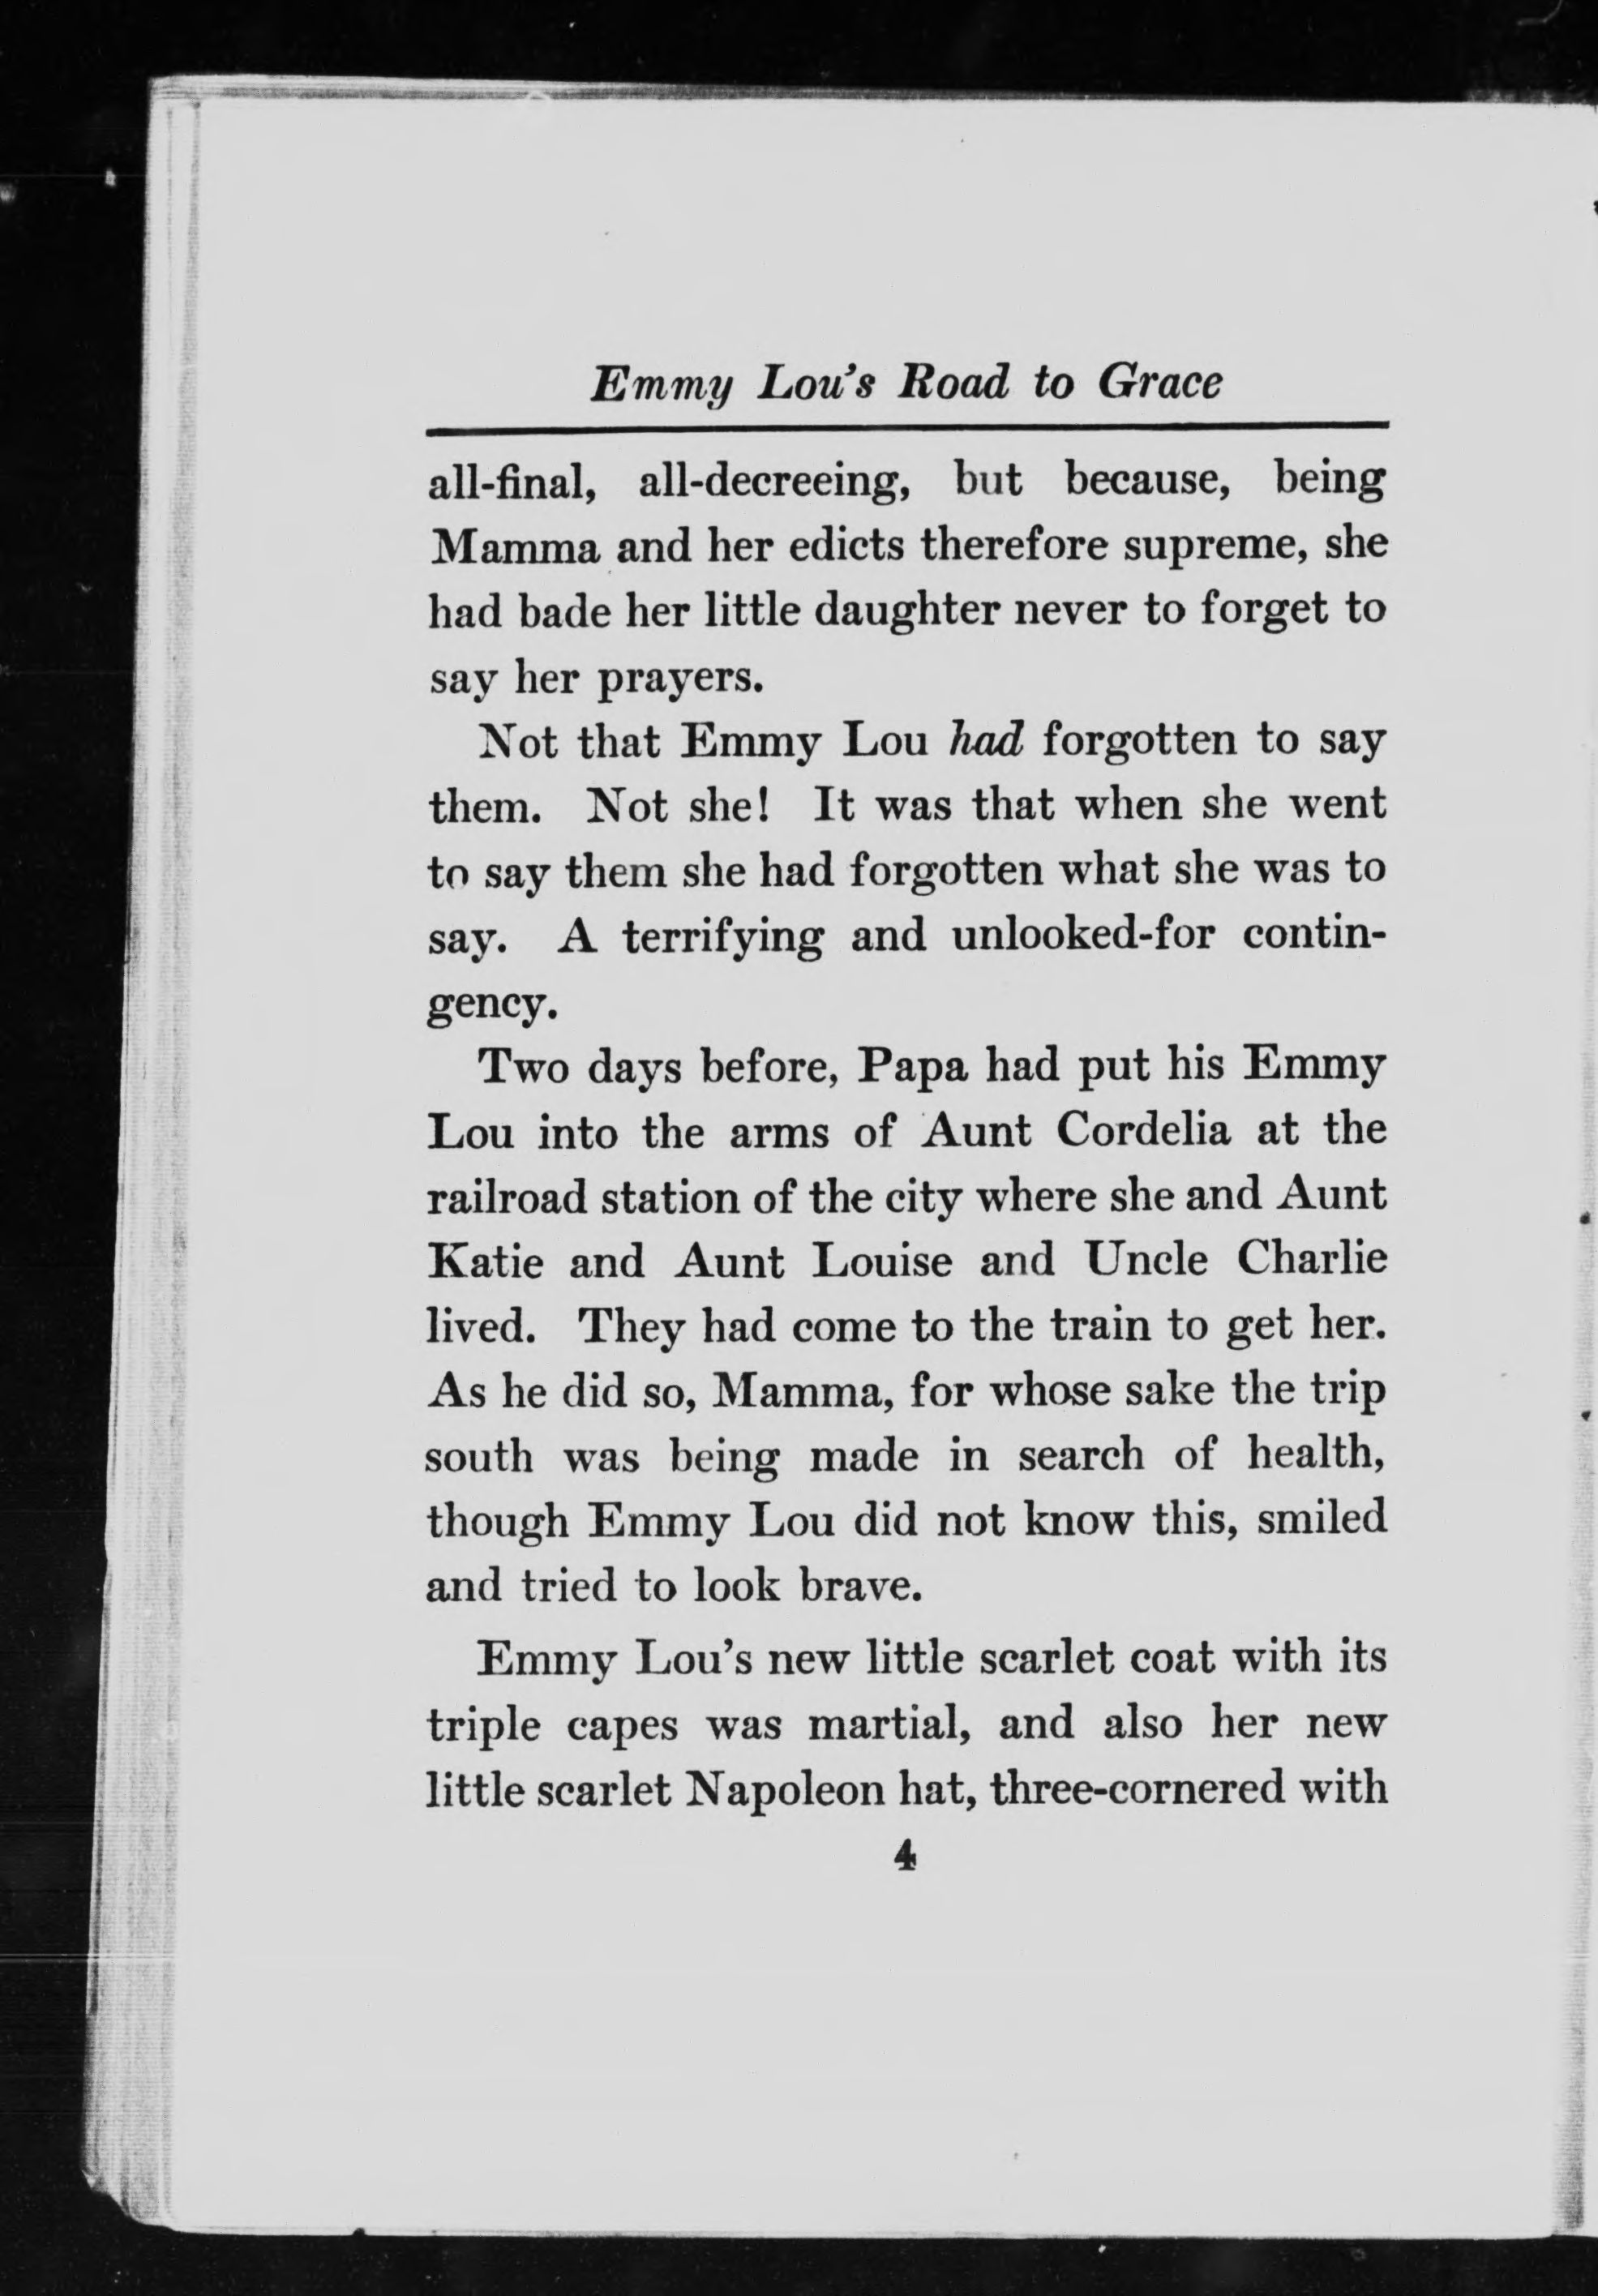 Emmy Lou's Road to Grace
all-final, all-decreeing, but because, being
Mamma and her edicts therefore supreme, she
had bade her little daughter never to forget to
say her prayers.
Not that Emmy Lou had forgotten to say
them. Not she! It was that when she went
to say them she had forgotten what she was to
say. A terrifying and unlooked-for contin-
gency.
Two days before, Papa had put his Emmy
Lou into the arms of Aunt Cordelia at the
railroad station of the city where she and Aunt
Katie and Aunt Louise and Uncle Charlie
lived. They had come to the train to get her.
As he did so, Mamma, for whose sake the trip
south was being made in search of health,
though Emmy Lou did not know this, smiled
and tried to look brave.
Emmy Lou's new little scarlet coat with its
triple capes was martial, and also her new
little scarlet Napoleon hat, three-cornered with
4